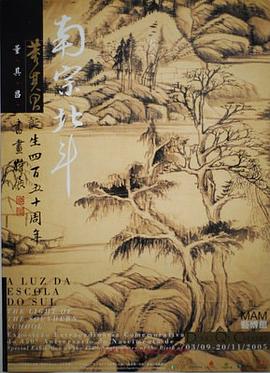 南宗北斗
董其昌
誕生四百五十周年
董其昌
書畫特展
A LUZ DA
ESCOLA
DO SUL
THE LIGHT OF
THE SOUTHERN
SCHOOL
Exposição Extraordinária Comemorativa
do 450º Aniversário do Nascimento de
Special Exhibition
MAM
藝博館
03/09-20/11/2005